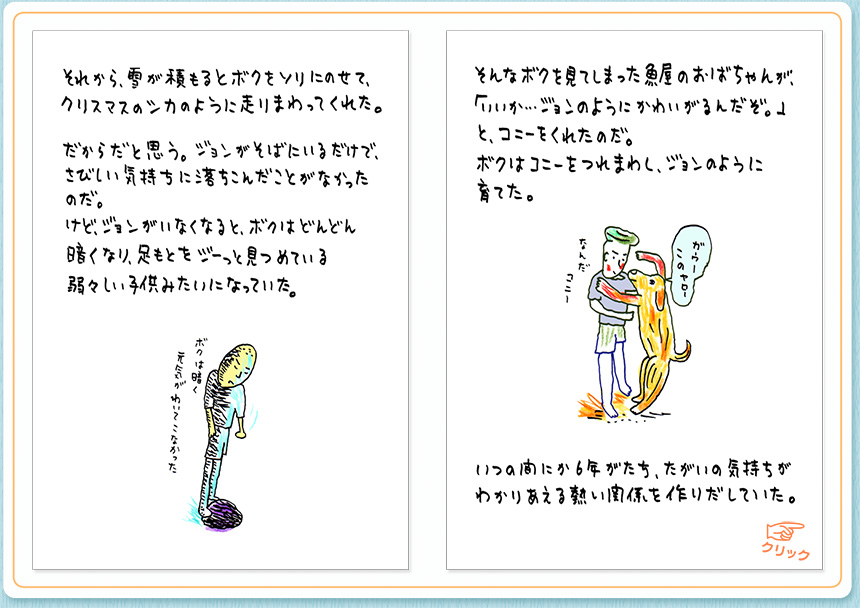 それから、雪が積もるとボクをソリにのせて、
クリスマスのシカのように走りまわってくれた。
だからだと思う。ジョンがそばにいるだけで、
さびしい気持ちに落ちこんだことがなかった
のだ。
けど、ジョンがいなくなると、ボクはどんどん
暗くなり、足もとをジーっと見つめている
弱々しい子供みたいになっていた。
ボクは暗く
元気がわいてこなかった
そんなボクを見てしまった魚屋のおばちゃんが、
「いいか…ジョンのようにかわいがるんだぞ。」
と、コニーをくれたのだ。
ボクはコニーをつれまわし、ジョンのように
育てた。
なんだ
コニー
がうー
このヤロー
いつの間にか6年がたち、たがいの気持ちが
わかりあえる熱い関係を作りだしていた。
クリック